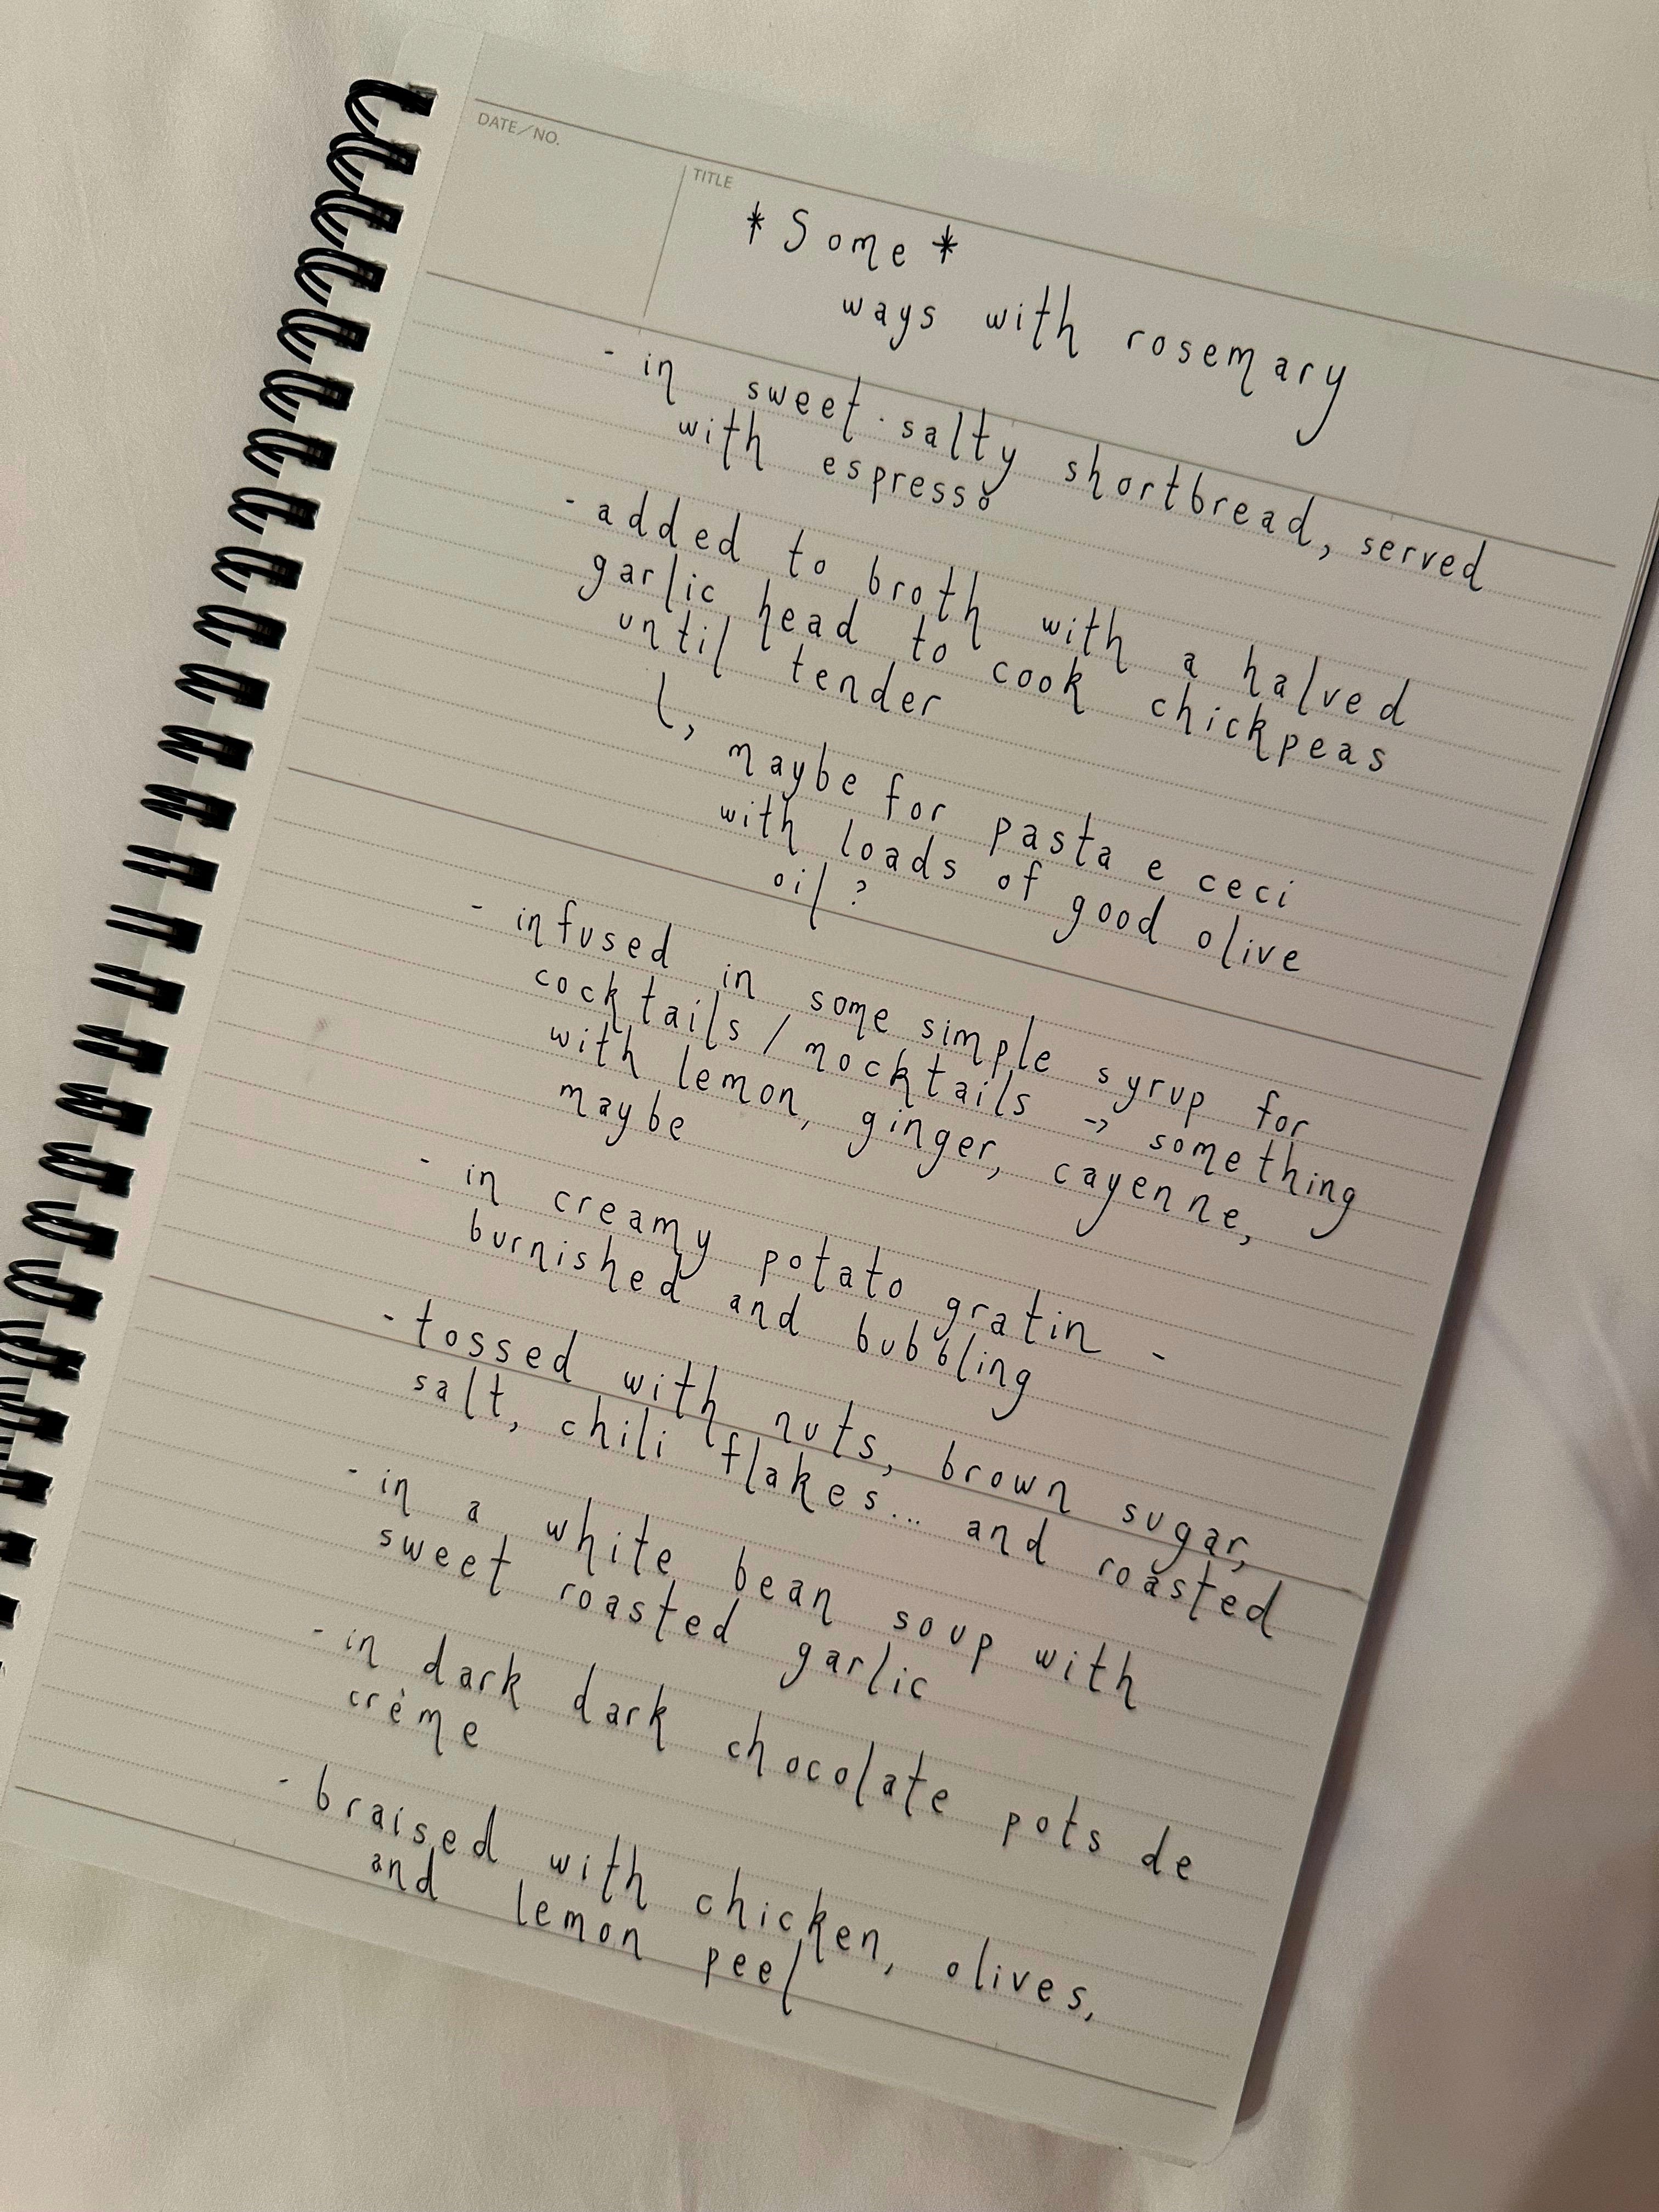 DATE/NO.
TITLE
*Some*
ways with rosemary
- in sweet-salty shortbread, served
with espresso
- added to broth with a halved
garlic head to cook chickpeas
until tender
↳ maybe for pasta e ceci
with loads of good olive
oil?
- infused in some simple syrup for
cocktails/mocktails → something
with lemon, ginger, cayenne,
maybe
- in creamy potato gratin -
burnished and bubbling
- tossed with nuts, brown sugar,
salt, chili flakes... and roasted
- in a white bean soup with
sweet roasted garlic
- in dark dark chocolate pots de
crème
- braised with chicken, olives,
and lemon peel